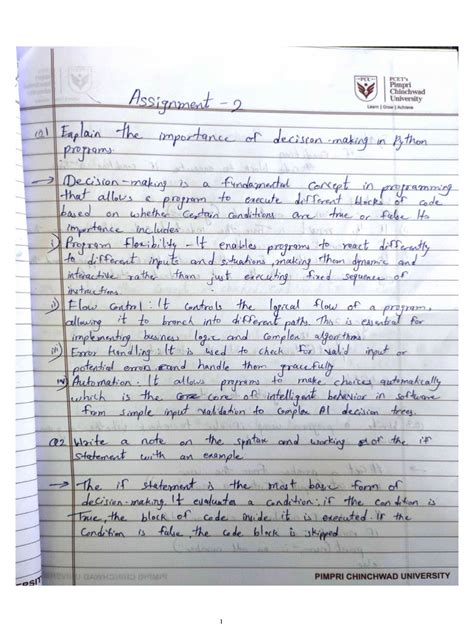 PCU
PCET's
Pimpri
Chinchwad
University
Learn | Grow | Achieve
Assignment - 2
Q1 Explain the importance of decison-making in Python
programs.
→ Decision-making is a fundamental concept in programming
that allows a program to execute different blocks of code
based on whether certain conditions are true or false Its
importance includes
i) Program flexibility - It enables programs to react differently
to different inputs and situations, making them dynamic and
interactive rather than just executing fixed sequence of
instructions.
ii) Flow Control : It controls the logical flow of a program,
allowing it to branch into different paths. This is essential for
implementing business logic and complex algorithms.
iii) Error Handling : It is used to check for valid input or
potential errors and handle them gracefully
iv) Automation : It allows programs to make choices automatically
which is the core of intelligent behavior in software
from simple input validation to complex AI decision trees.
Q2 Write a note on the syntax and working of the if
statement with an example
→ The if statement is the most base form of
decision-making. It evaluates a condition; if the condition is
True, the block of code inside it is executed. If the
condition is false, the code block is skipped
PIMPRI CHINCHWAD UNIVERSITY
1